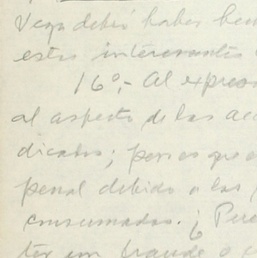 Vega debió haber hecho
estas interesantes
16º.- Al expres
al aspecto de las acc
dicatos; pero es que
penal debido a las
consumadas. ¿ Pue
ter un fraude o